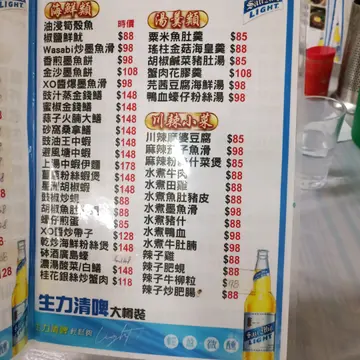 海鮮類
油浸筍殼魚 時價
椒鹽鮮魷 $88
Wasabi炒墨魚滑 $98
香煎墨魚餅 $98
金沙墨魚餅 $108
XO醬爆墨魚滑 $98
豉汁蒸金錢鱔 $148
蜜椒金錢鱔 $148
蒜子火腩大鱔 $148
砂窩桑拿鱔 $148
豉油王中蝦 $148
避風塘中蝦 $148
上湯中蝦伊麵 $178
粉絲蝦 $148
星洲胡椒蝦 $148
豉椒炒蜆 $88
胡椒魚肚 $118
蠔仔煎蛋 $88
XO 炒帶子 $128
乾炒海鮮粉絲煲 $98
砵酒廣島蠔
濃湯酸菜 白鱔 $148
桂花銀絲炒蟹肉 $118
湯羹類
粟米魚肚羹 $85
瑤柱金菇海皇羹 $88
胡椒鹹菜豬肚湯 $85
蟹肉花膠羹 $98
芫茜豆腐海鮮湯 $98
鴨血蠔仔粉絲湯 $98
川辣小菜
川辣麻婆豆腐 $85
麻辣茄子魚滑 $98
麻辣粉 什菜煲 $85
水煮牛肉 $88
水煮田雞 $88
水煮魚肚豬皮 $88
水煮墨魚滑 $98
水煮豬什 $88
水煮鴨血 $98
水煮牛肚腩 $98
辣子雞 $88
辣子肥蜆 $88
辣子牛柳粒 $88
辣子炒肥腸 $88
生力清啤 大樽裝
生力清啤
San Mig
LIGHT
輕盈微醺